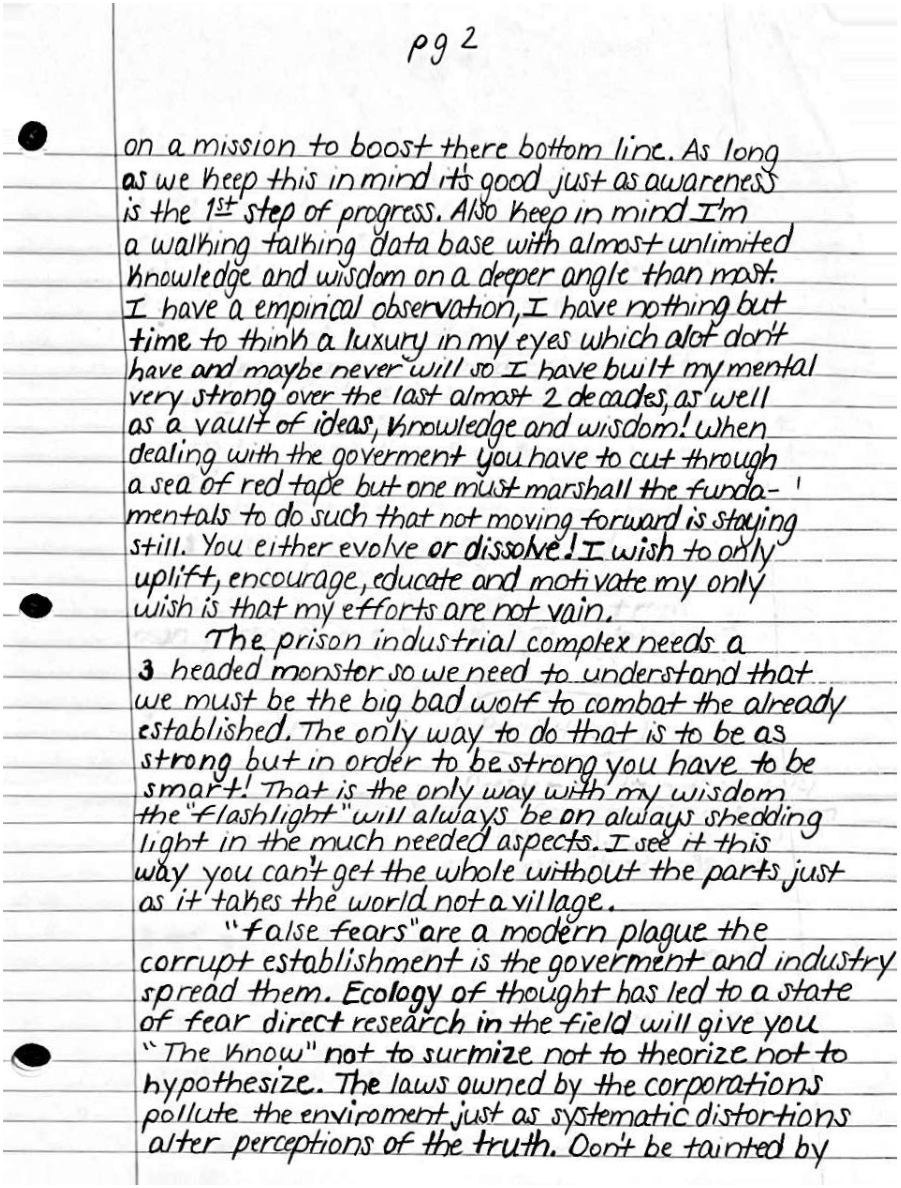 pg 2
on a mission to boost there bottom line. As long
as we keep this in mind it's good just as awareness
is the 1st step of progress. Also keep in mind I'm
a walking talking data base with almost unlimited
knowledge and wisdom on a deeper angle than most.
I have a empirical observation, I have nothing but
time to think a luxury in my eyes which alot don't
have and maybe never will so I have built my mental
very strong over the last almost 2 decades, as well
as a vault of ideas, knowledge and wisdom! When
dealing with the goverment you have to cut through
a sea of red tape but one must marshall the funda-
mentals to do such that not moving forward is staying
still. You either evolve or dissolve! I wish to only
uplift, encourage, educate and motivate my only
wish is that my efforts are not vain.
The prison industrial complex needs a
3 headed monstor so we need to understand that
we must be the big bad wolf to combat the already
established. The only way to do that is to be as
strong but in order to be strong you have to be
smart! That is the only way with my wisdom
the "flashlight" will always be on always shedding
light in the much needed aspects. I see it this
way you can't get the whole without the parts just
as it takes the world not a village.
"false fears" are a modern plague the
corrupt establishment is the goverment and industry
spread them. Ecology of thought has led to a state
of fear direct research in the field will give you
"The know" not to surmize not to theorize not to
hypothesize. The laws owned by the corporations
pollute the enviroment just as systematic distortions
alter perceptions of the truth. Don't be tainted by